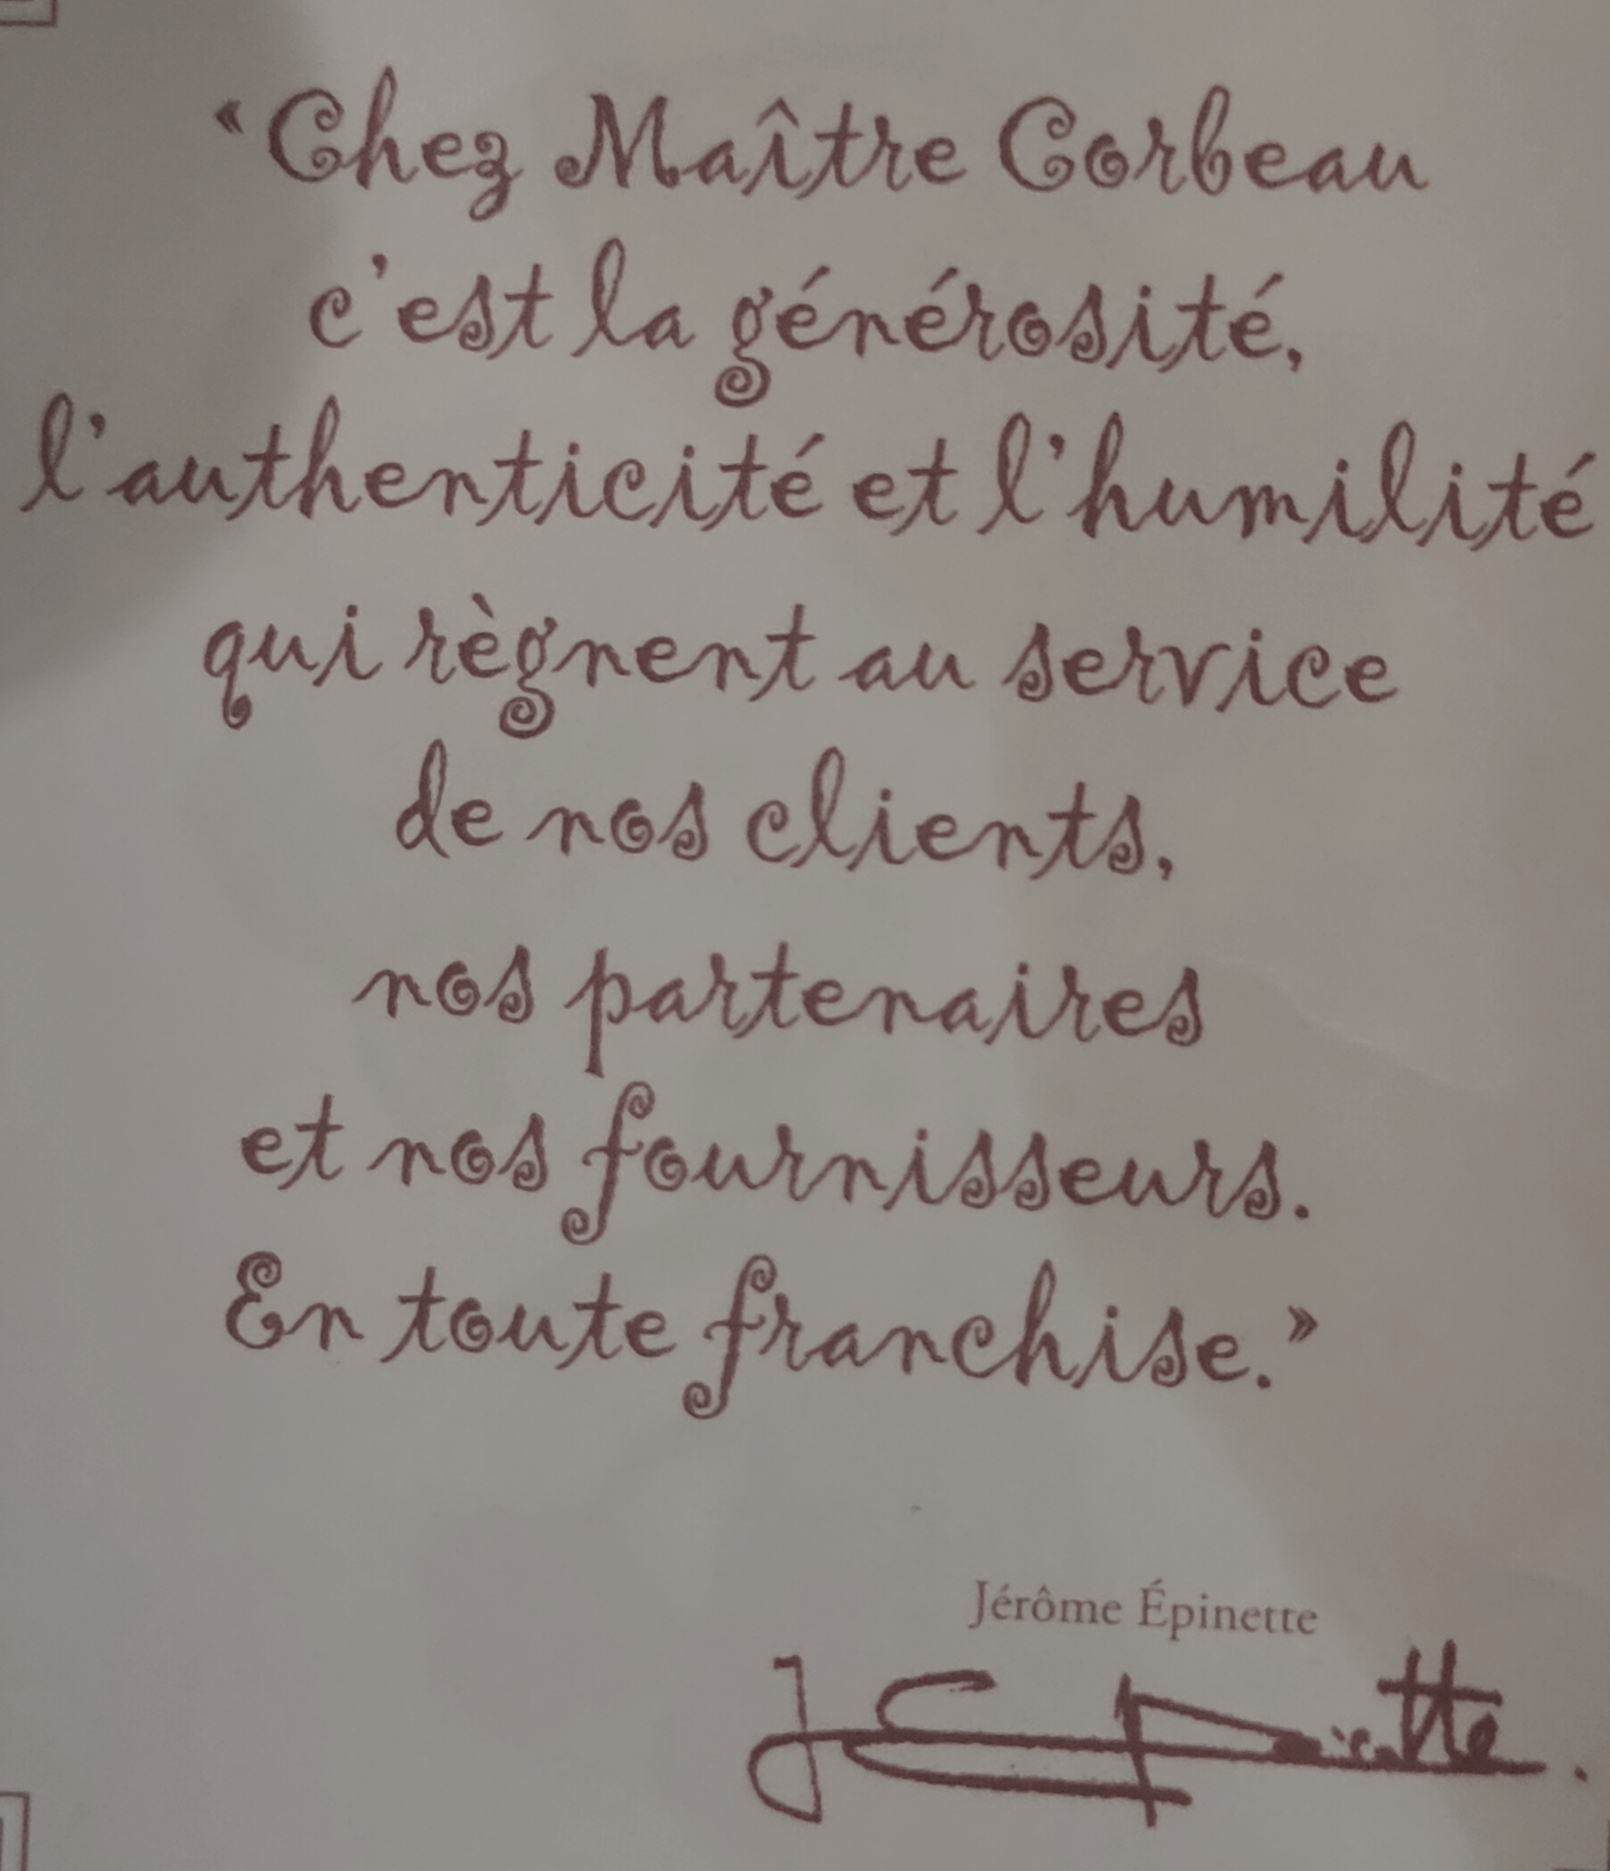 «Chez Maître Corbeau
c'est la générosité,
l'authenticité et l'humilité
qui règnent au service
de nos clients,
nos partenaires
et nos fournisseurs.
En toute franchise.»
Jérôme Épinette